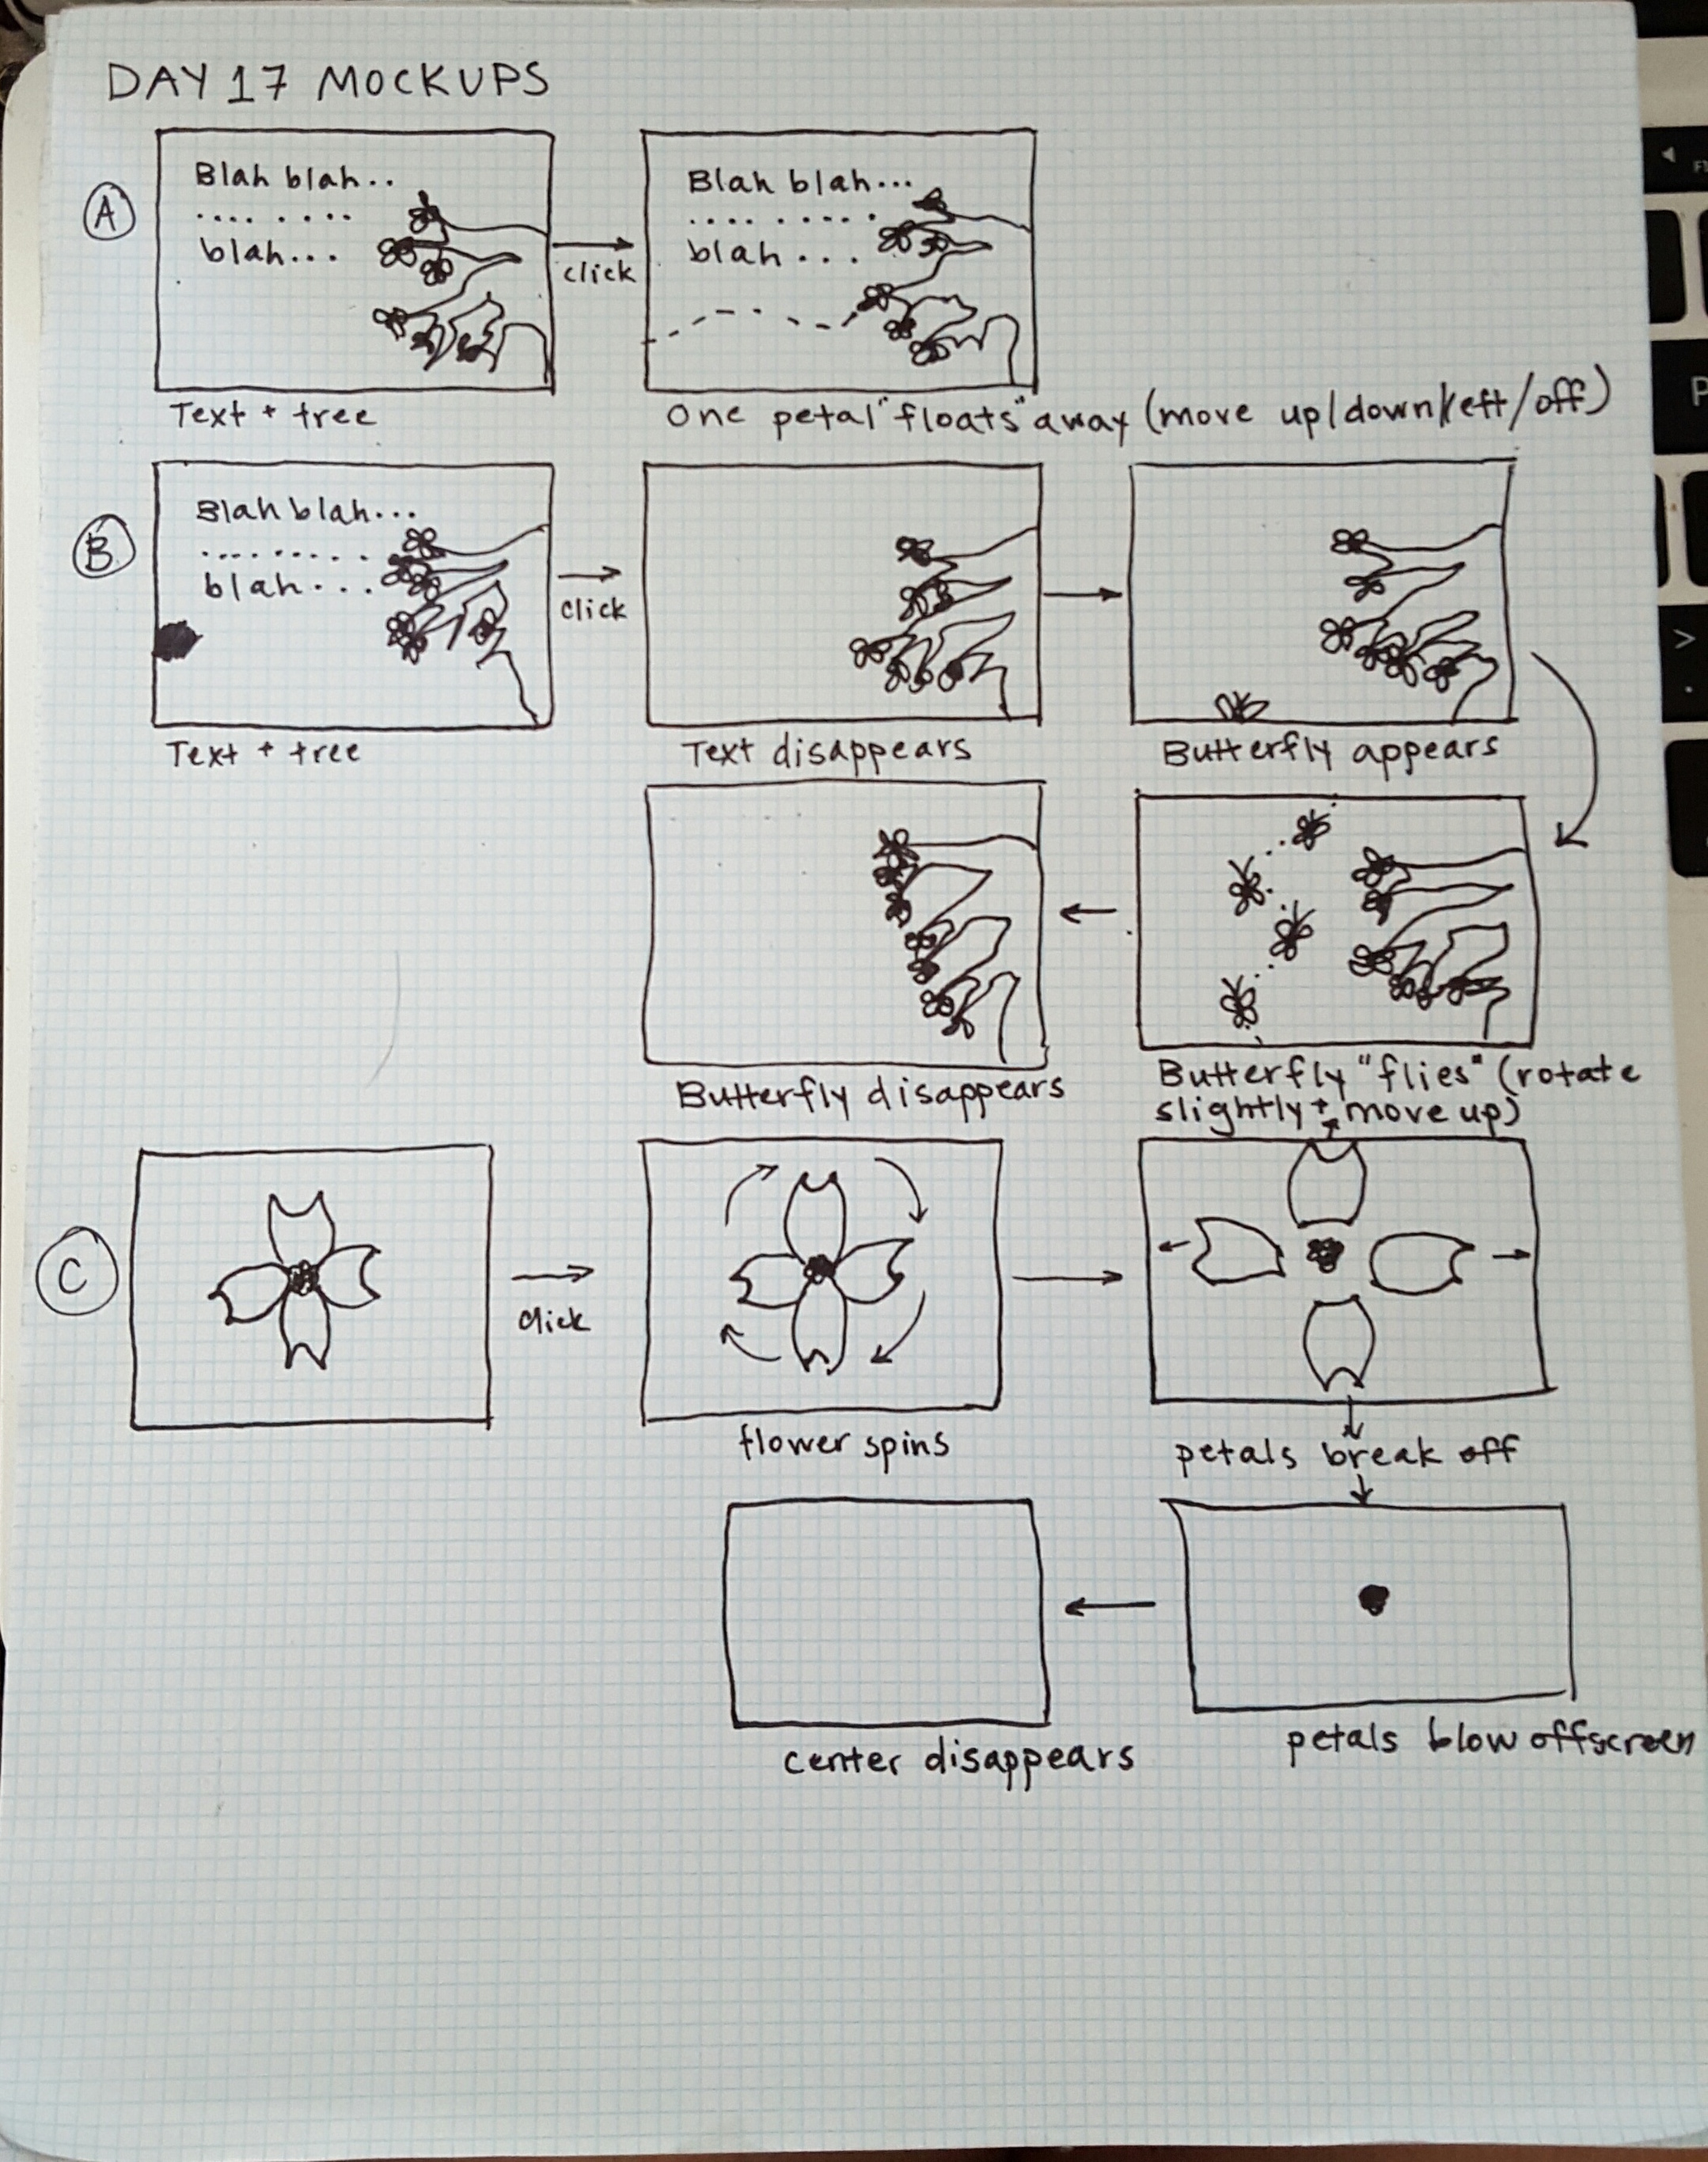 DAY 17 MOCKUPS
A
Blah blah..
.... ....
blah...
click
Blah blah...
.... .....
blah...
Text + tree
One petal "floats" away (move up/down/left/off)
B
Blah blah...
.........
blah...
click
Text + tree
Text disappears
Butterfly appears
Butterfly disappears
Butterfly "flies" (rotate
slightly + move up)
C
click
flower spins
petals break off
center disappears
petals blow offscreen
F
P
>
.